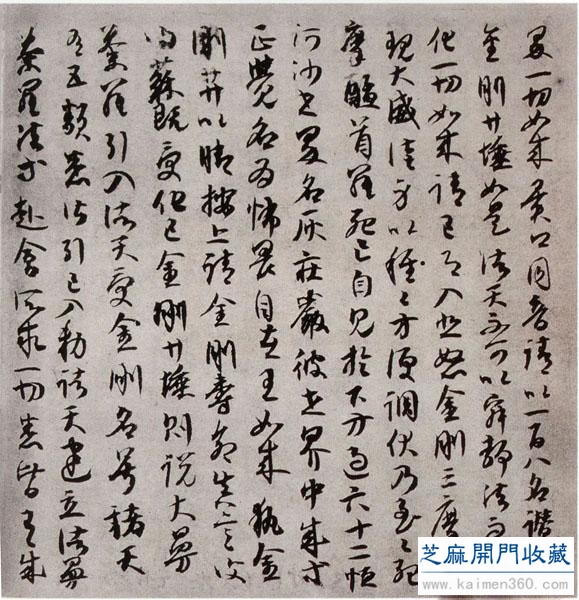 一切如來異口同音請以一百八名讚
金剛薩埵如是諸天不可以寂靜法而
化一切如來請已即入悲怒金剛三摩
現大威德身以種々方便調伏乃至々死
摩醯首羅死已自見於下方過六十二恒
河沙世界名灰莊嚴彼世界中成等
正覺名為怖畏自在王如來執金
剛𦬇以脚按之誦金剛壽命真言復
得蘇既受化已金剛薩埵則說大曼
荼羅引入諸天受金剛名号諸天
有五類引已入勅諸天建立諸曼
荼羅法赴會所求一切悉皆有成
芝麻開門收藏
www.kaimen360.com